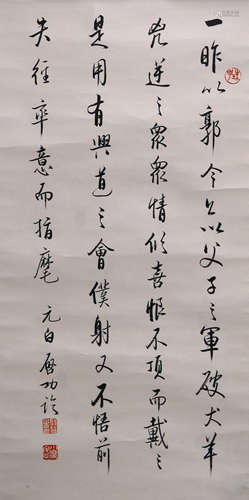 一昨以郭令公以父子之軍破犬羊
兇逆之眾眾情似喜恨不頂而戴之
是用有興道之會僕射又不悟前
失徑率意而指麾 元白啓功臨